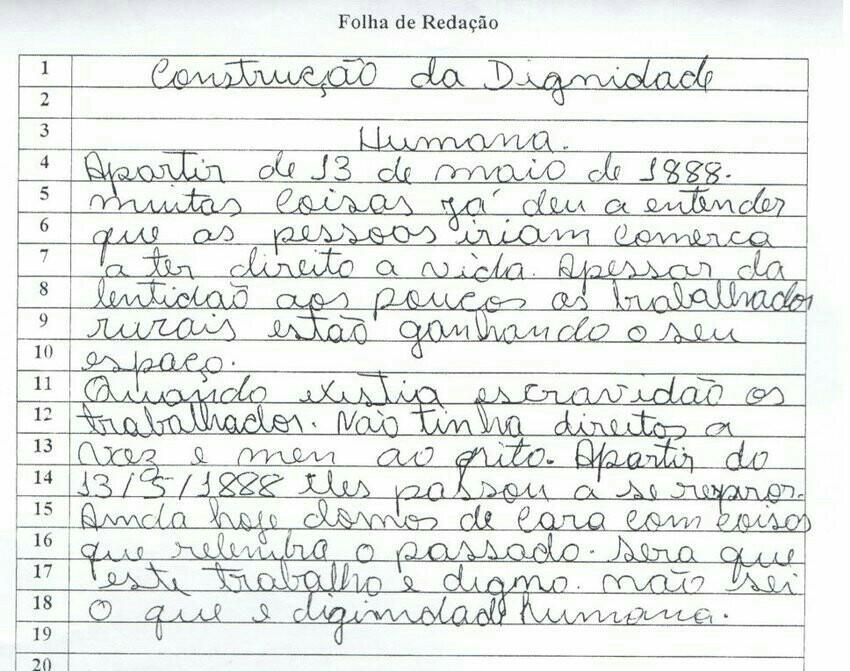 Folha de Redação
1 Construção da Dignidade
2
3 Humana.
4 Apartir de 13 de maio de 1888.
5 muitas coisas já deu a entender
6 que as pessoas iriam comerca
7 a ter direito a vida. Apessar da
8 lentidaõ aos pouços os trabalhador
9 rurais estão ganhando o seu
10 espaço.
11 Quando existia escravidão os
12 trabalhador. Não tinha direitos a
13 vez e men ao grito. Apartir do
14 13/5/1888 eles passou a se
15 Ainda hoje domos de cara com coisas
16 que relembra o passado. sera que
17 este trabalho e digmo. não sei
18 O que e digimdade humana.
19
20